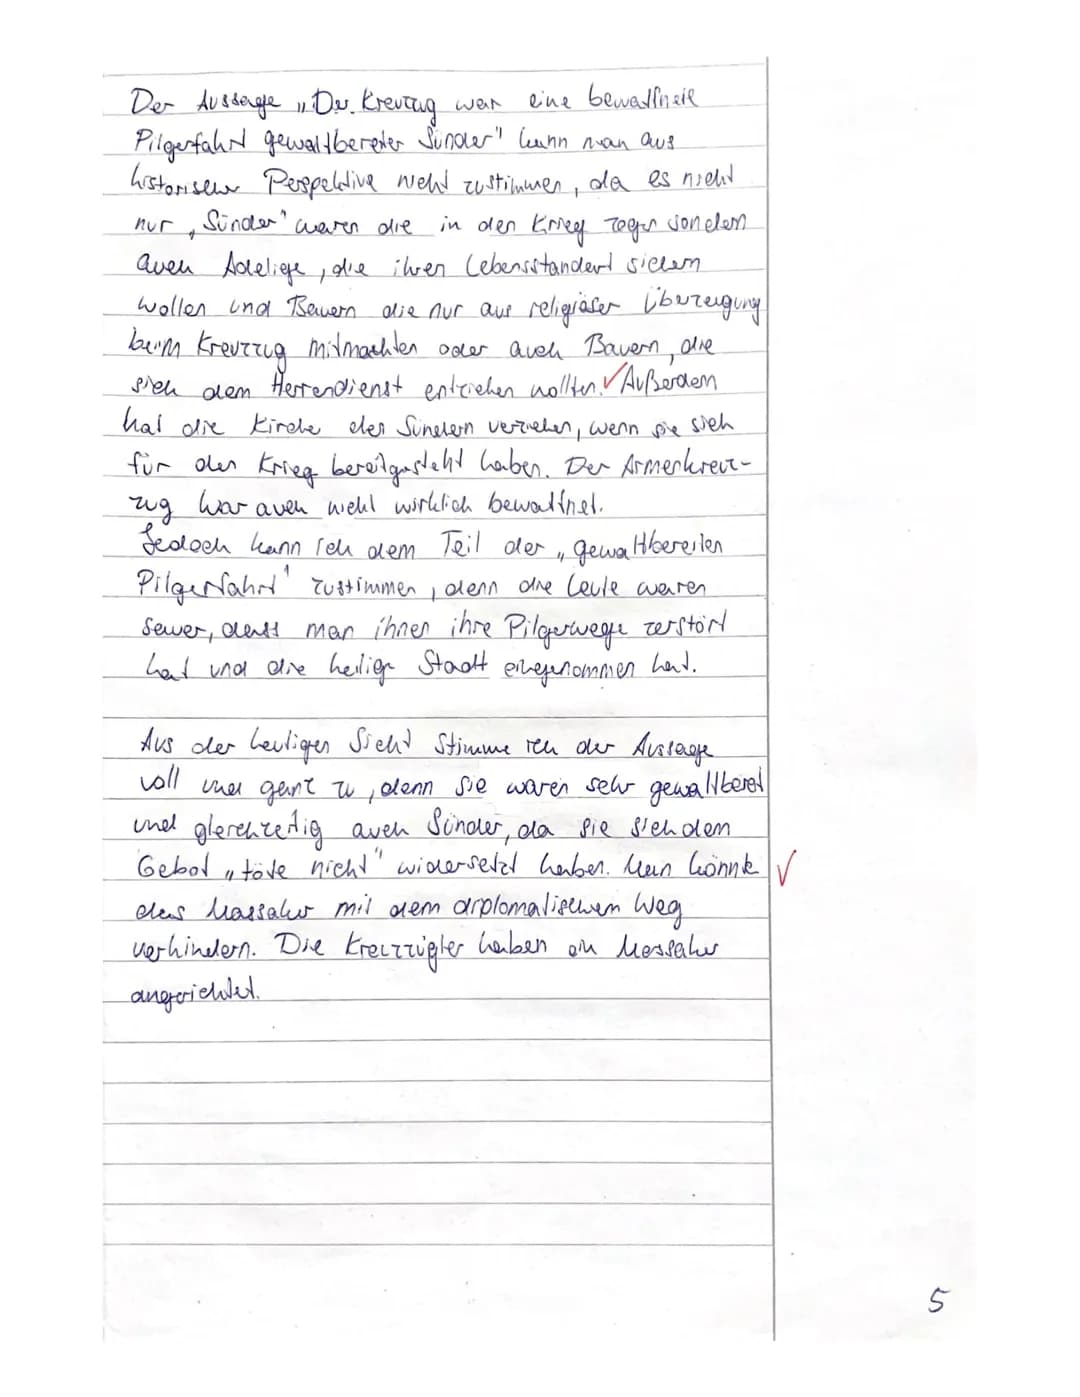 Der Aussage „Der Kreuzzug war eine bewaffnete
Pilgerfahrt gewaltbereiter Sünder" kann man aus
historischer Perspektive nicht zustimmen, da es nicht
nur „Sünder" waren die in den Krieg zogen sondern
auch Adelige, die ihren Lebensstandart sichern
wollen und Bauern die nur aus religiöser Überzeugung
beim Kreuzzug mitmachten oder auch Bauern, die
sich dem Herrendienst entziehen wollten. ✓ Außerdem
hat die Kirche den Sündern verziehen, wenn sie sich
für den Krieg bereitgestellt haben. Der Armenkreuz-
zug war auch nicht wirklich bewaffnet.
Jedoch kann ich dem Teil der „gewaltbereiten
Pilgerfahrt" zustimmen, denn die Leute waren
sauer, dass man ihnen ihre Pilgerwege zerstört
hat und die heilige Stadt eingenommen hat.
Aus der heutigen Sicht stimme ich der Aussage
voll und ganz zu, denn sie waren sehr gewaltbereit
und gleichzeitig auch Sünder, da sie sich dem
Gebot „töte nicht" widersetzt haben. Man könnte ✓
das Massaker mit dem diplomatischem Weg
verhindern. Die Kreuzzügler haben ein Massaker
angerichtet.
5